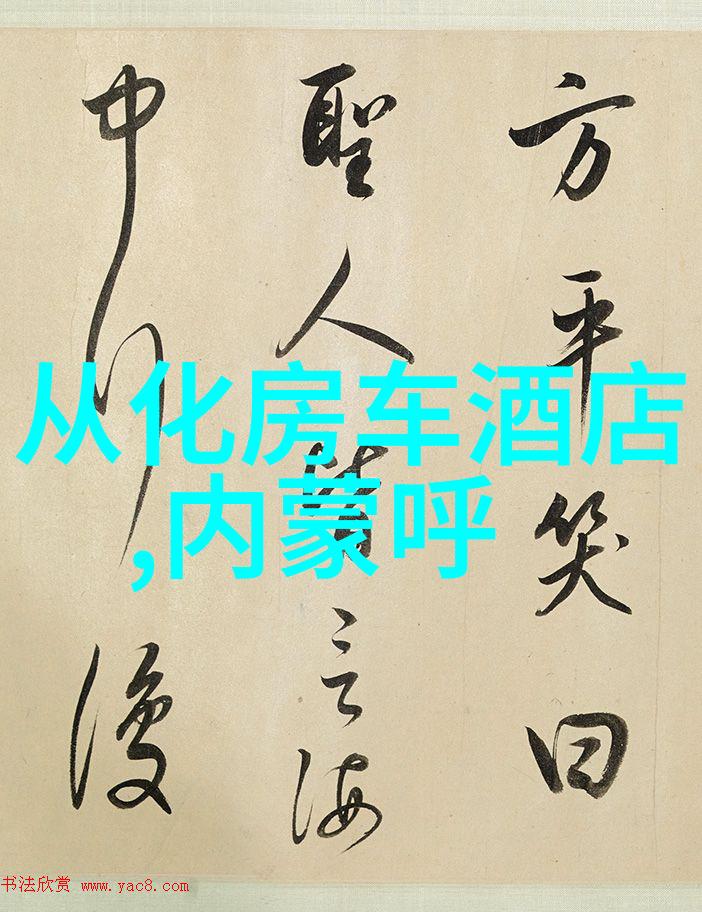 方平笑曰
聖人皆言海
中行復
从化房车酒店
,内蒙呼
书法欣赏 www.yac8.com